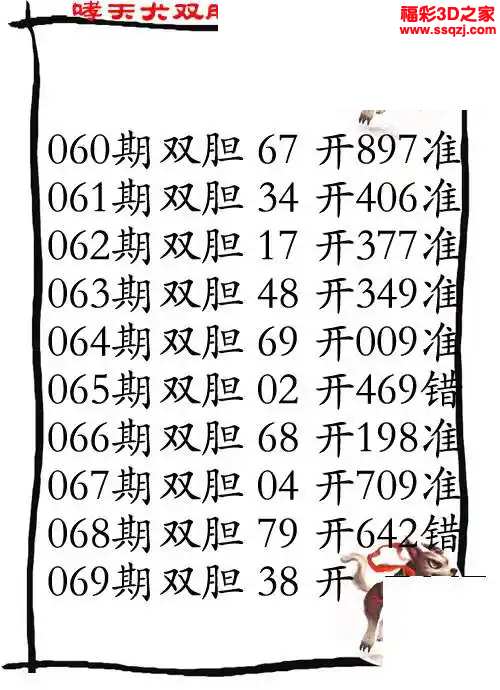 哮天犬双胆
福彩3D之家
www.ssqzj.com
060期双胆 67 开897准
061期双胆 34 开406准
062期双胆 17 开377准
063期双胆 48 开349准
064期双胆 69 开009准
065期双胆 02 开469错
066期双胆 68 开198准
067期双胆 04 开709准
068期双胆 79 开642错
069期双胆 38 开